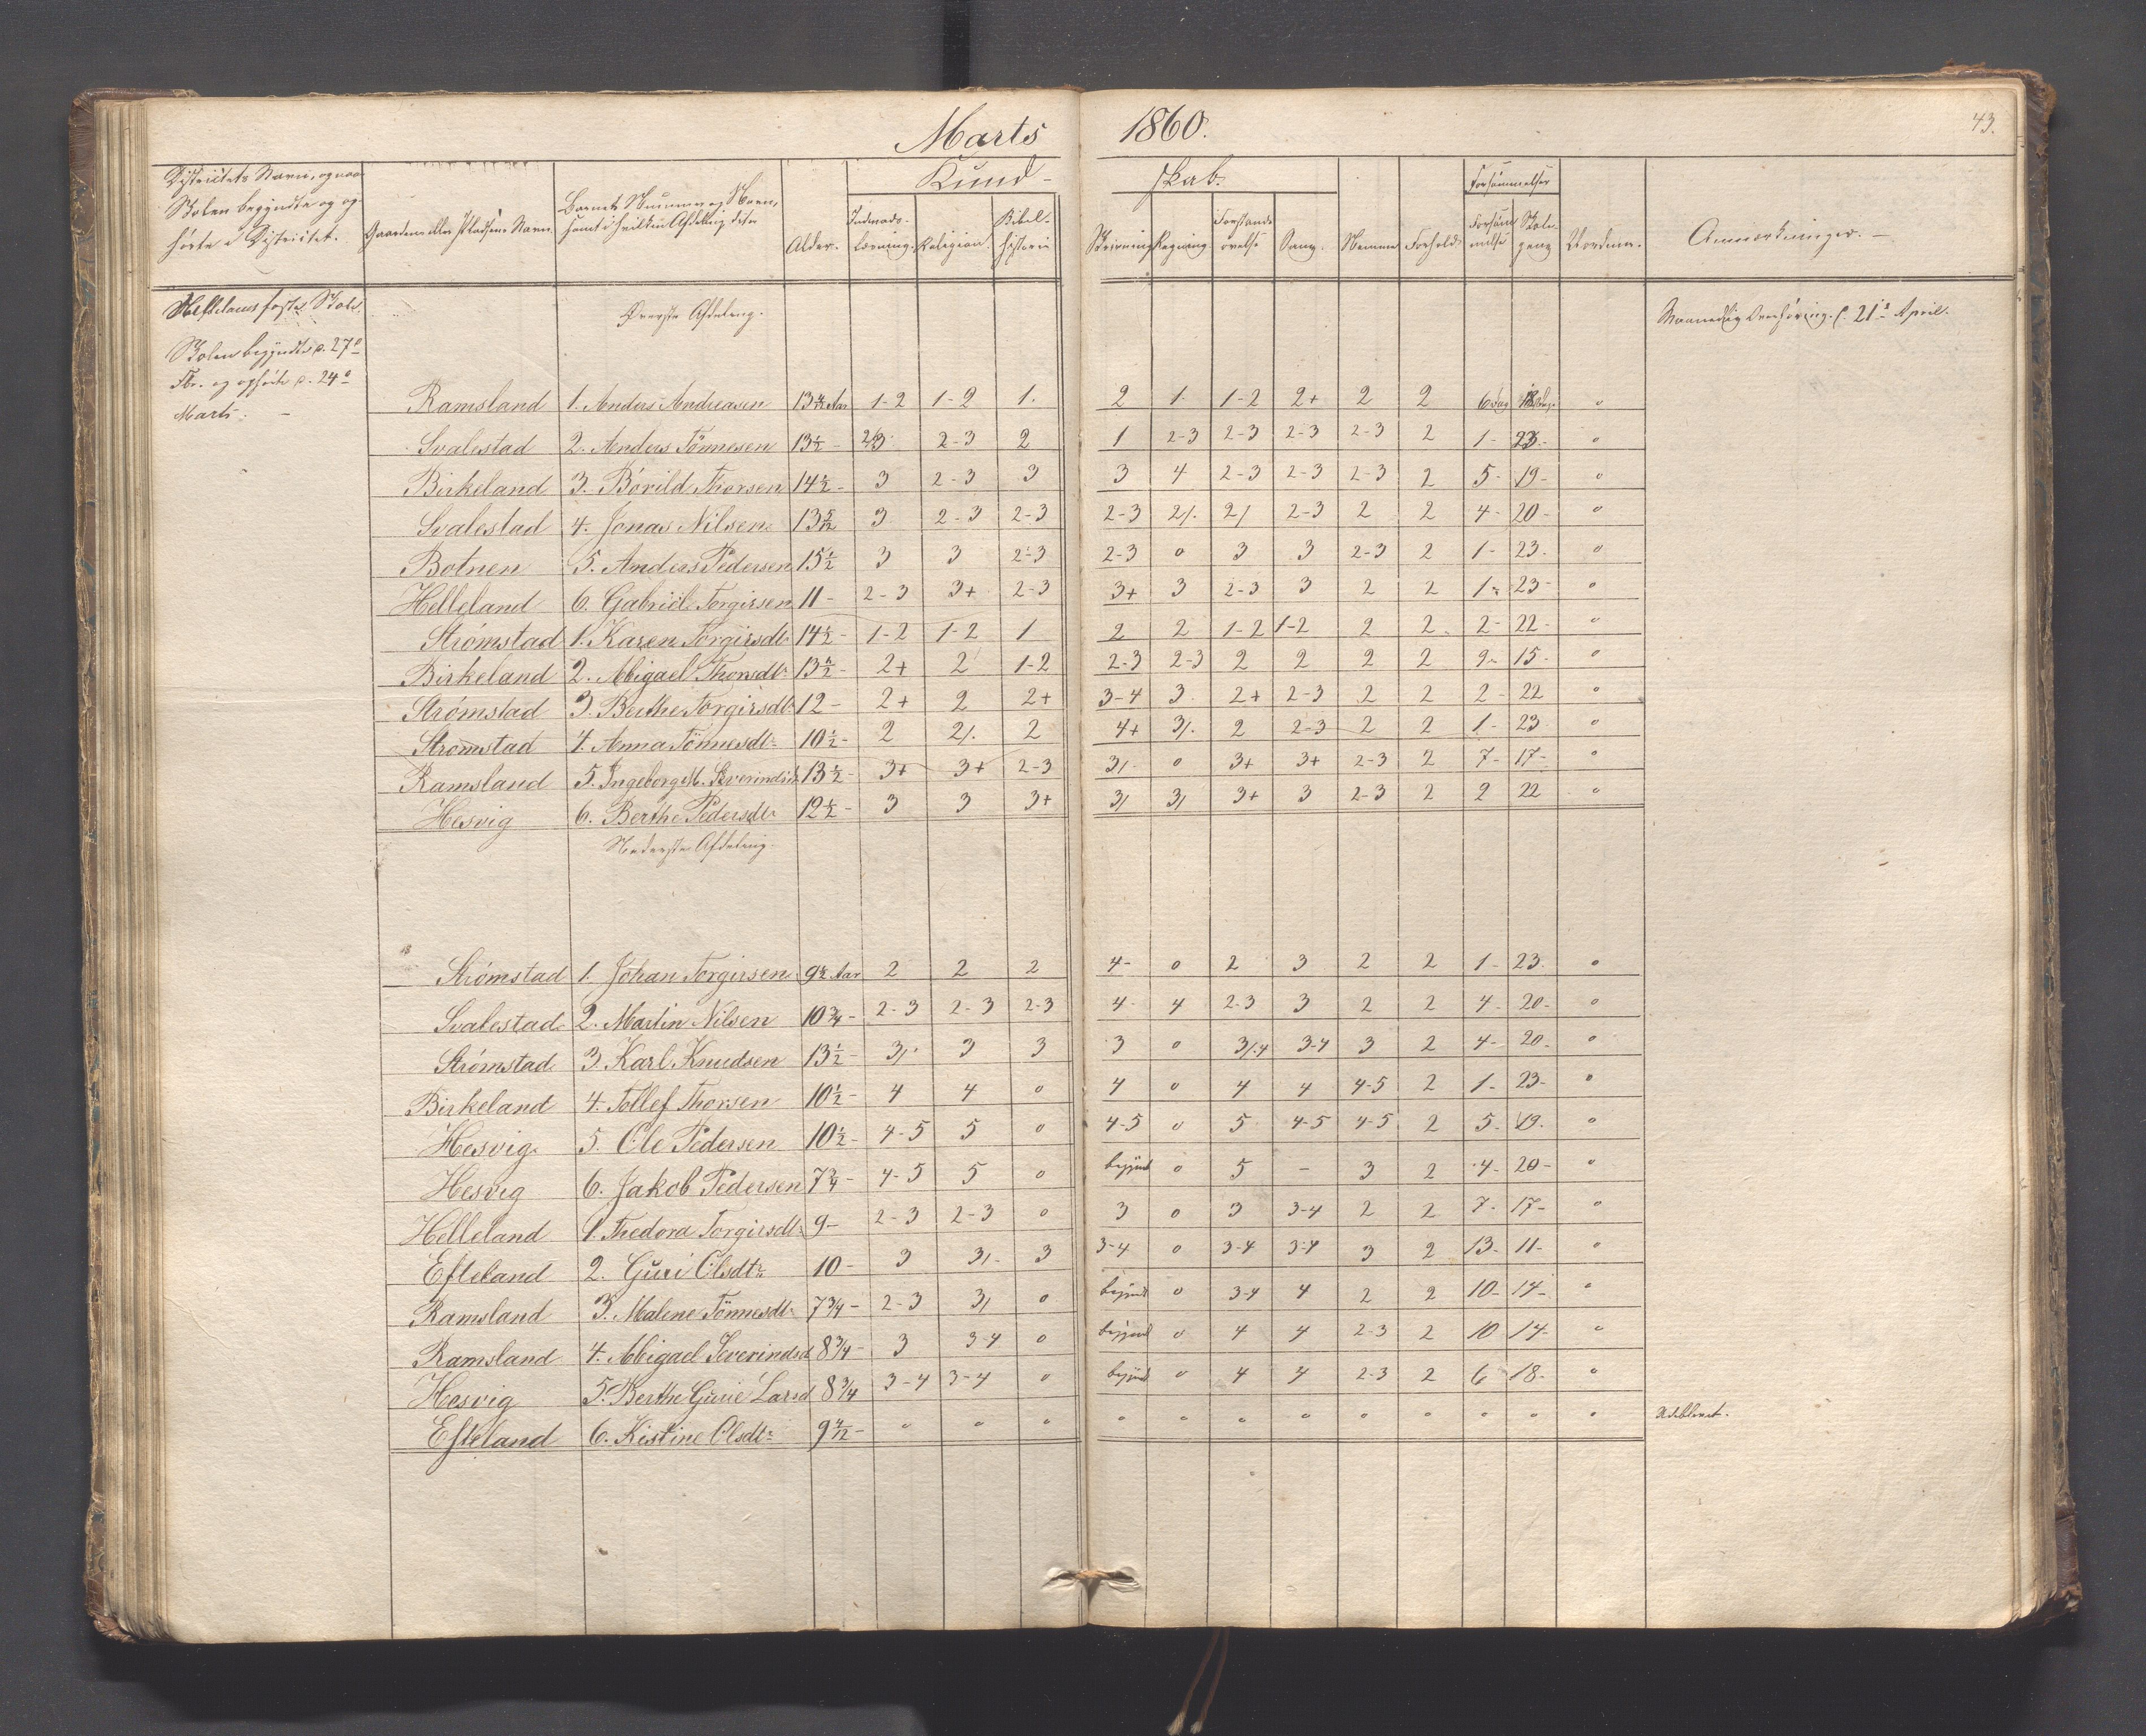 Marts 1860.
43.
Kund- skab.
Forsømmelser
Districtets Navn, og naar Skolen begyndte og ophørte i Districtet.
Gaardens eller Pladsens Navn.
Barnets Nummer og Navn, samt i hvilken Afdeling dette
Alder.
Religion.
Bibel-historie
Skrivning
Regning
Forstands-øvelse
Sang.
Nemme
Forhold
Forsømmelse
Skole-gang
Anmærkninger. –
faste Skole
Øverste Afdeling.
Maanedlig Overhøring d. 21de April.
Skolen begyndte d. 27de
Fbr. og ophørte d. 24de
Marts. –
Ramsland 1. Anders Andreasen 13 Aar 1-2 1-2 1. 2 1. 1-2 2+ 2 2 6 Dag 18 Dag. o
Svalestad 2. Anders Tönnesen 13½ - 2/3 2-3 2 1 2-3 2-3 2-3 2-3 2 1- 23- o
Birkeland 3. Börild Thorsen 14½ - 3 2-3 3 3 4 2-3 2-3 2-3 2 5- 19- o
Svalestad 4. Jonas Nilsen 13 3 2-3 2-3 2-3 2/. 2/ 2-3 2 2 4- 20- o
Botnen 5. Anders Pedersen 15½ 3 3 2-3 2-3 o 3 3 2-3 2 1- 23. o
Helleland 6. Gabriel Torgirsen 11 - 2-3 3+ 2-3 3+ 3 2-3 3 2 2 1- 23- o
Strømstad 1. Karen Torgirsdtr 14½ - 1-2 1-2 1 2 2 1-2 1-2 2 2 2- 22- o
Birkeland 2. Abigael Thorsdtr 13½ - 2+ 2 1-2 2-3 2-3 2 2 2 2 9- 15- o
Strømstad 3. Berthe Torgirsdtr 12 - 2+ 2 2+ 3-4 3 2+ 2-3 2 2 2- 22 o
Strømstad 4. Anna Tönnesdtr 10½ - 2 2/. 2 4+ 3/. 2 2-3 2 2 1- 23 o
Ramsland 5. Ingeborg M. Severinsdtr 13½ - 3+ 3+ 2-3 3/. o 3+ 3+ 2-3 2 7- 17- o
Hesvig 6. Berthe Pedersdtr 12½ - 3 3 3+ 3/ 3/ 3+ 3 2-3 2 2 22 o
Nederste Afdeling.
Strømstad 1. Johan Torgirsen 9½ Aar 2 2 2 4- o 2 3 2 2 1- 23. o
Svalestad 2. Martin Nilsen 10¾ - 2-3 2-3 2-3 4- 4 2-3 3 2 2 4- 20- o
Strømstad 3. Karl Knudsen 13½ - 3/. 3 3 3 o 3/.4 3-4 3 2 4- 20- o
Birkeland 4. Tollef Thorsen 10½ - 4 4 o 4 o 4 4 4-5 2 1- 23- o
Hesvig 5. Ole Pedersen 10½ - 4-5 5 o 4-5 o 5 4-5 4-5 2 5- 19. o
Hesvig 6. Jakob Pedersen 7¾ - 4-5 5 o begynd o 5 - 3 2 4- 20- o
Helleland 1. Thedora Torgirsdtr 9 - 2-3 2-3 o 3 o 3 3-4 2 2 7- 17- o
Efteland 2. Guri Olsdtr 10 - 3 3/. 3 3-4 o 3-4 3-4 3 2 13- 11- o
Ramsland 3. Malene Tönnesdtr 7¾ - 2-3 3/ o begynd o 3-4 4 2 2 10- 14- o
Ramsland 4. Abigael Severinsd 8¾ - 3 3-4 o begynd o 4 4 2-3 2 10 14- o
Hesvig 5. Berthe Gurie Larsd 8¾ 3-4 3-4 o begynd o 4 4 2-3 2 6 18- o
Efteland 6. Kistine Olsdtr 9 - o o o o o o o o o o o o Udeblevet.